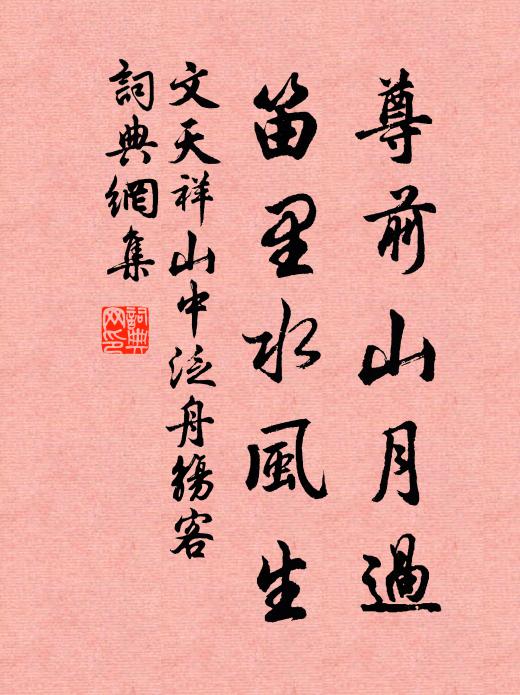 尊前山月過
笛里水風生
文天祥山中泛舟觴客
詞典網集
詞典網印